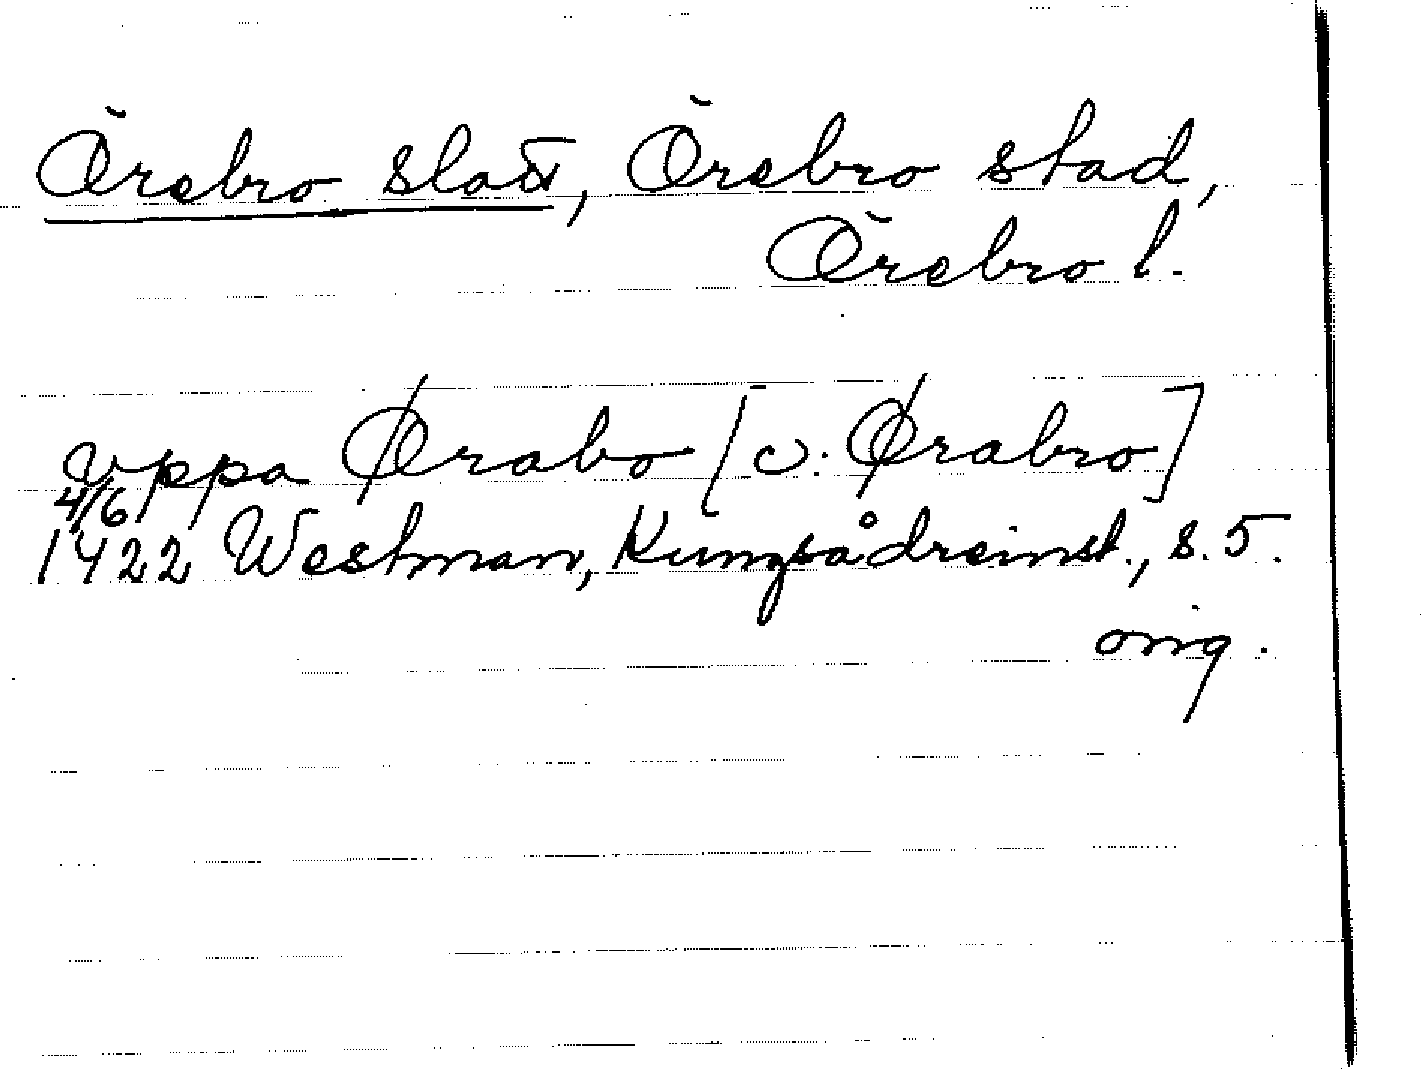 Örebro slott, Örebro stad,
Örebro l.
vppa Ørabo [ɔ: Ørabro]
4/6
1422 Westman, Kungsådreinst., s. 5.
orig.